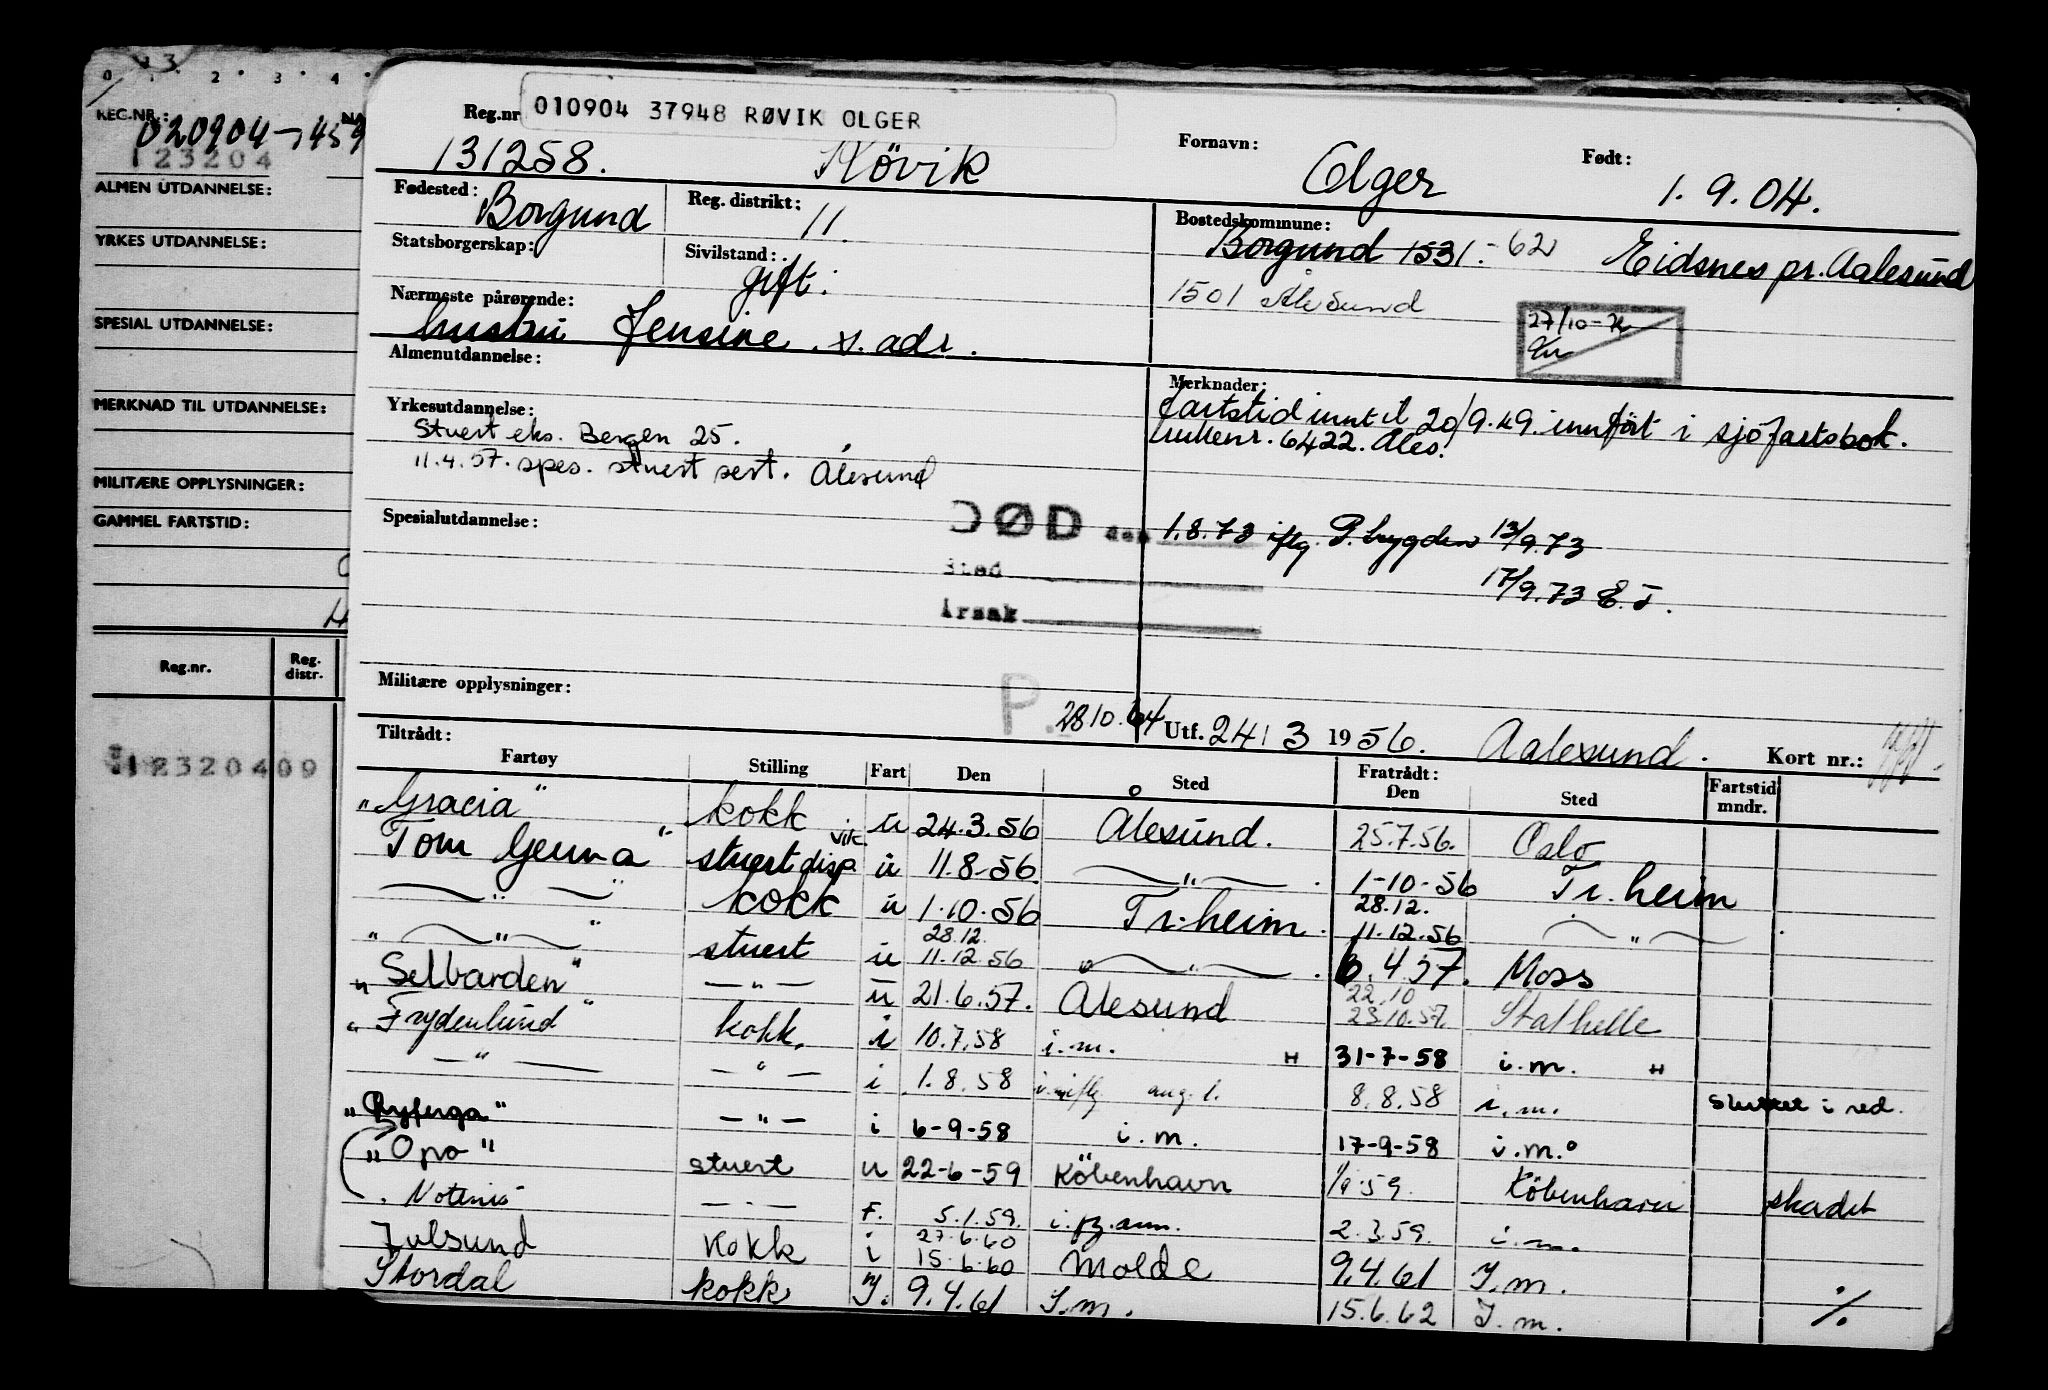 0 1 2 3 4
REG.NR.:
020904-459
123204
ALMEN UTDANNELSE:
YRKES UTDANNELSE:
SPESIAL UTDANNELSE:
MERKNAD TIL UTDANNELSE:
MILITÆRE OPPLYSNINGER:
GAMMEL FARTSTID:
Reg.nr. Reg. distr.
12320409
Reg.nr 010904 37948 RØVIK OLGER
131258. Røvik Fornavn: Olger Født: 1.9.04.
Fødested: Borgund Reg. distrikt: 11. Bostedskommune: Borgund 1531.-62 Eidsnes pr. Aalesund
Statsborgerskap: Sivilstand: gift. 1501 Ålesund
Nærmeste pårørende: hustru Jensine s. adr. 27/10-
Almenutdannelse:
Merknader: fartstid inntil 20/9.49. innført i sjöfartsbok.
rullenr. 6422. Ales.
Yrkesutdannelse:
Stuert eks. Bergen 25.
11.4.57. spes. stuert sert. Ålesund
Spesialutdannelse:
DØD den 1.8.73 iflg. P.trygden 13/9.73
Sted 17/9.73 E.T.
Årsak
Militære opplysninger:
P. 2810.64 Utf. 24/3 1956. Aalesund. Kort nr.:
Tiltrådt: Fratrådt:
Fartøy Stilling Fart Den Sted Den Sted Fartstid mndr.
"Gracia" kokk u 24.3.56 Ålesund. 25.7.56. Oslo
Tom Gerina" stuert disp. vik. u 11.8-56. —"— 1-10-56 Tr.heim
—"— kokk u 1.10.56 Tr.heim. 28.12. 11.12.56 —"—
"—"—" stuert u 28.12. 11.12.56 —"— 6.4.57. Moss
"Selbarden" —"— u 21.6.57. Ålesund 22.10 23.10.57. Stathelle
"Frydenlund" kokk. i 10.7.58 i.m. " 31-7-58 i.m. "
—"— —"— i 1.8.58 i.m iflg aug. l. 8.8.58 i.m. sluttet i red.
"Ryferga" —"— i 6-9-58 i.m. 17-9-58 i.m.
"Opo" stuert u 22-6-59 Köbenhavn 1/9.59. Köbenhavn skadet
—"— F. 5.1.59. 2.3.59. i.m.
Julsund kokk i 27.6.60 15.6.60 Molde 9.4.61 I.m.
Stordal kokk I. 9.4.61 I.m. 15.6.62 I.m. %